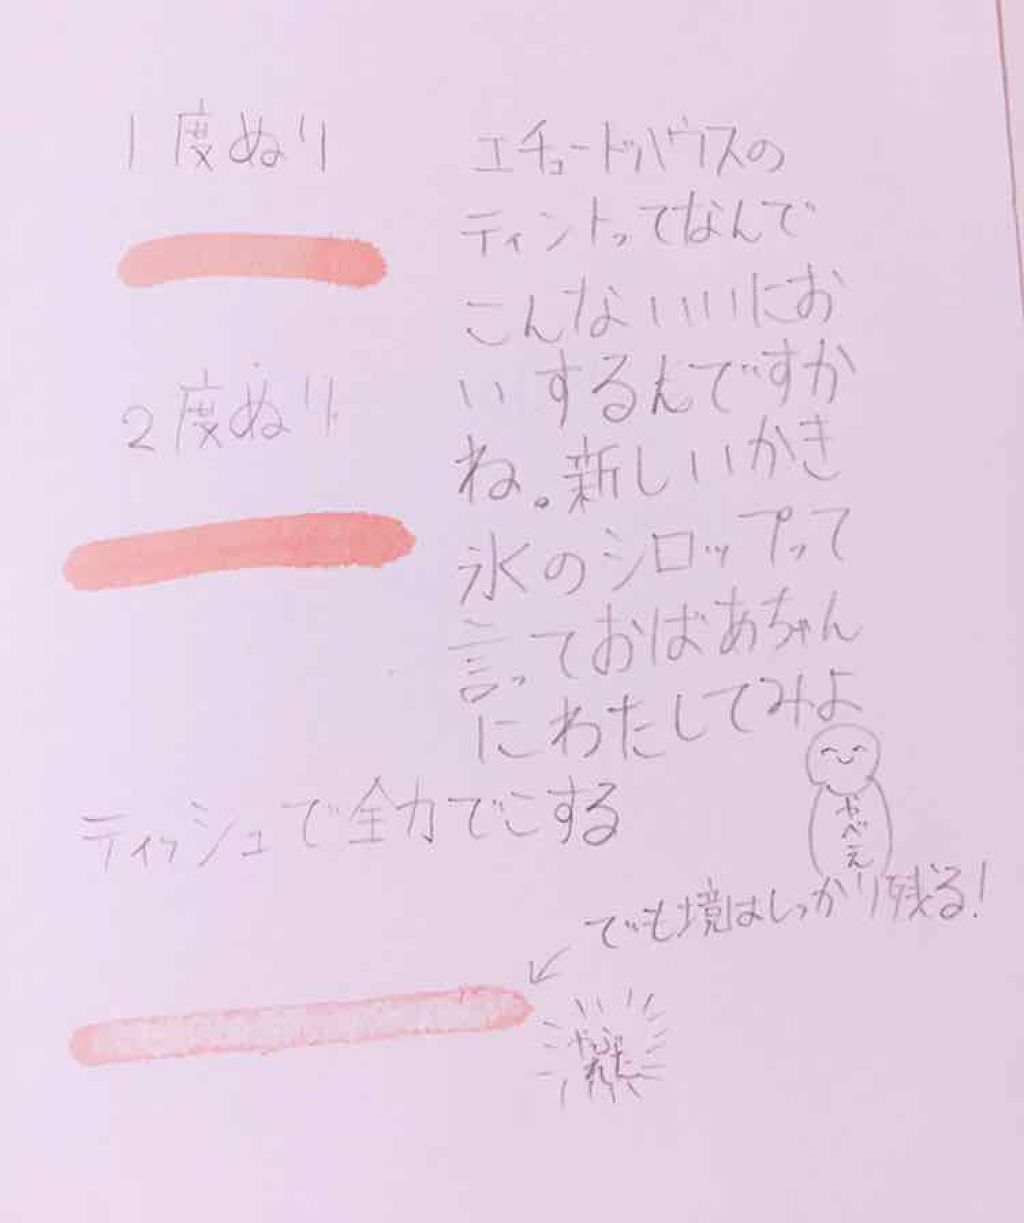 1度ぬり
エチュードハウスの
ティントってなんで
こんないいにお
いするんですか
ね。新しいかき
氷のシロップって
言っておばあちゃん
にわたしてみよ
2度ぬり
ティッシュで全力でこする
やべえ
でも境はしっかり残る!
やぶ
れた